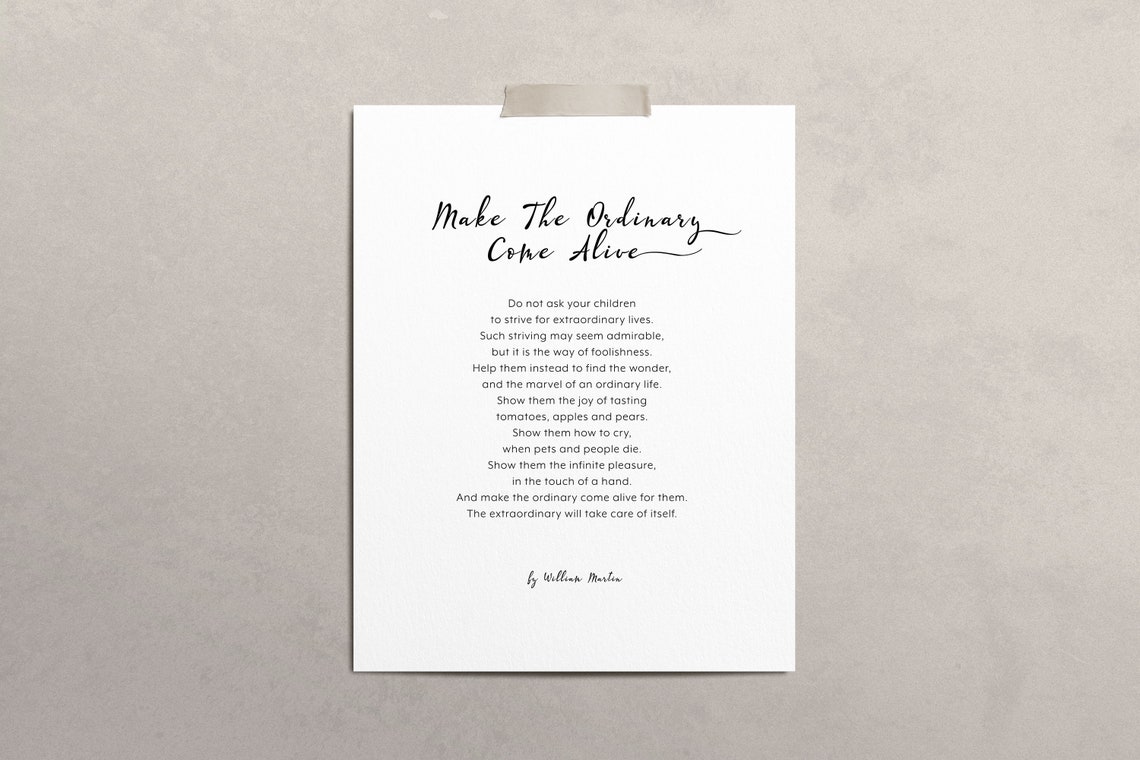 Make The Ordinary
Come Alive
Do not ask your children
to strive for extraordinary lives.
Such striving may seem admirable,
but it is the way of foolishness.
Help them instead to find the wonder,
and the marvel of an ordinary life.
Show them the joy of tasting
tomatoes, apples and pears.
Show them how to cry,
when pets and people die.
Show them the infinite pleasure,
in the touch of a hand.
And make the ordinary come alive for them.
The extraordinary will take care of itself.
by William Martin